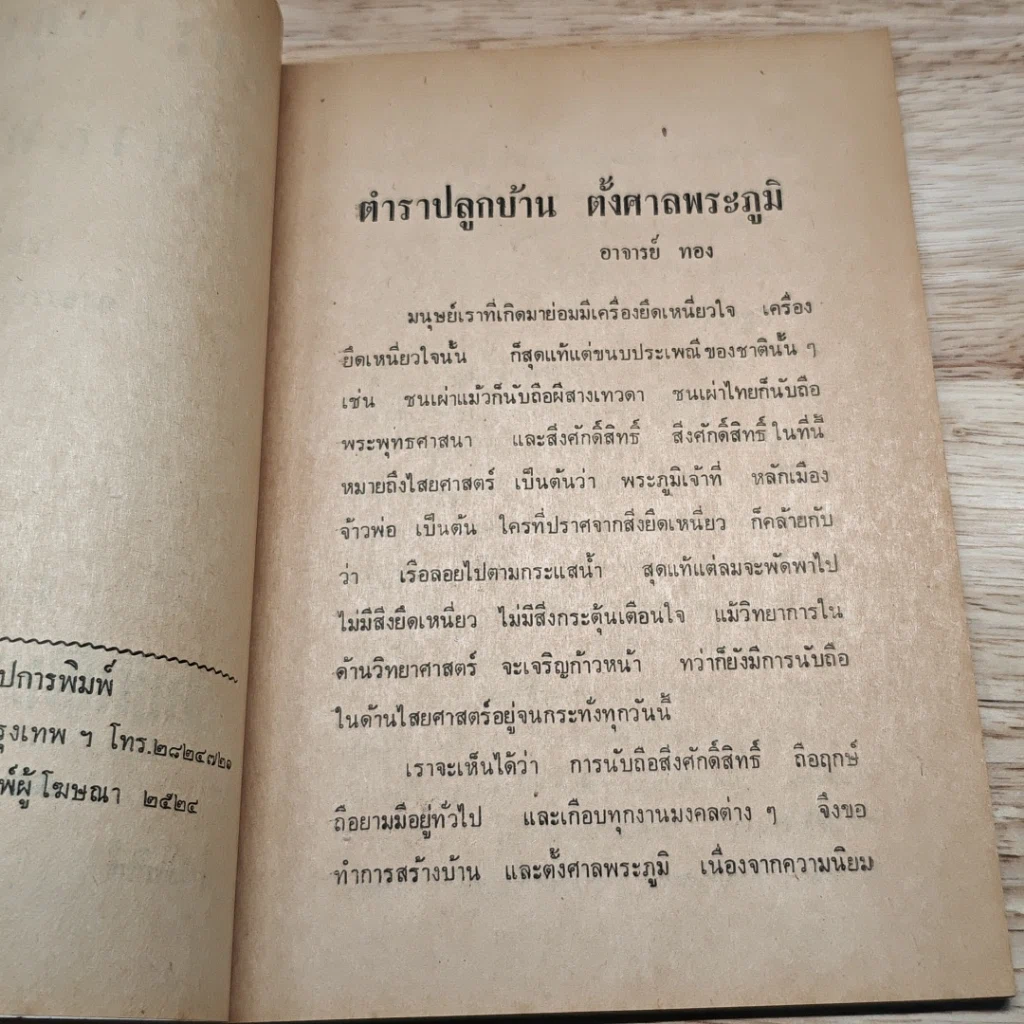 ปการพิมพ์
รุงเทพ ฯ โทร.๒๘๒๔๗๒๑
พ์ผู้โฆษณา ๒๕๒๔
ตำราปลูกบ้าน ตั้งศาลพระภูมิ
อาจารย์ ทอง
มนุษย์เราที่เกิดมาย่อมมีเครื่องยึดเหนี่ยวใจ เครื่อง
ยึดเหนี่ยวใจนั้น ก็สุดแท้แต่ขนบประเพณีของชาตินั้น ๆ
เช่น ชนเผ่าแม้วก็นับถือผีสางเทวดา ชนเผ่าไทยก็นับถือ
พระพุทธศาสนา และสิ่งศักดิ์สิทธิ์ สิ่งศักดิ์สิทธิ์ในที่นี้
หมายถึงไสยศาสตร์ เป็นต้นว่า พระภูมิเจ้าที่ หลักเมือง
จ้าวพ่อ เป็นต้น ใครที่ปราศจากสิ่งยึดเหนี่ยว ก็คล้ายกับ
ว่า เรือลอยไปตามกระแสน้ำ สุดแท้แต่ลมจะพัดพาไป
ไม่มีสิ่งยึดเหนี่ยว ไม่มีสิ่งกระตุ้นเตือนใจ แม้วิทยาการใน
ด้านวิทยาศาสตร์ จะเจริญก้าวหน้า ทว่าก็ยังมีการนับถือ
ในด้านไสยศาสตร์อยู่จนกระทั่งทุกวันนี้
เราจะเห็นได้ว่า การนับถือสิ่งศักดิ์สิทธิ์ ถือฤกษ์
ถือยามมีอยู่ทั่วไป และเกือบทุกงานมงคลต่าง ๆ จึงขอ
ทำการสร้างบ้าน และตั้งศาลพระภูมิ เนื่องจากความนิยม